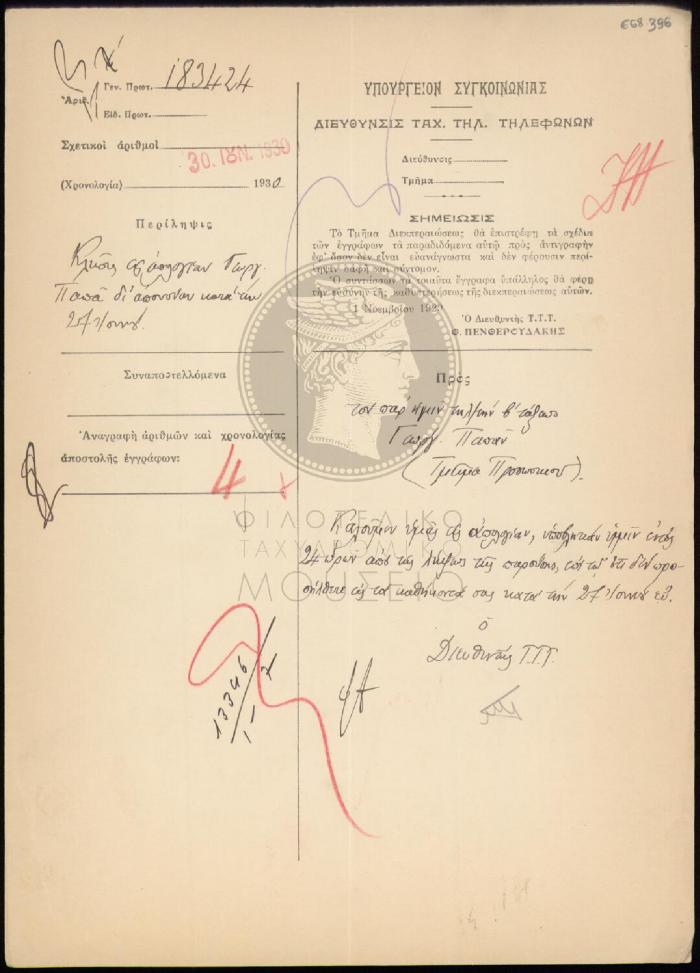 ε68.396
Γεν. Πρωτ. 183424
Ἀριθ.
Εἰδ. Πρωτ.
Σχετικοὶ ἀριθμοὶ
30. ΙΟΥΝ. 1930
(Χρονολογία) 1930
Περίληψις
Κλῆσις εἰς ἀπολογίαν Γεωργ.
Παπᾶ δι' ἀπουσίαν κατὰ τὴν
27 Ἰουνίου.
Συναποστελλόμενα
Ἀναγραφὴ ἀριθμῶν καὶ χρονολογίας
ἀποστολῆς ἐγγράφων:
4
ΥΠΟΥΡΓΕΙΟΝ ΣΥΓΚΟΙΝΩΝΙΑΣ
ΔΙΕΥΘΥΝΣΙΣ ΤΑΧ. ΤΗΛ. ΤΗΛΕΦΩΝΩΝ
Διεύθυνσις
Τμῆμα
ΣΗΜΕΙΩΣΙΣ
Τὸ Τμῆμα Διεκπεραιώσεως θὰ ἐπιστρέφῃ τὰ σχέδια
τῶν ἐγγράφων τὰ παραδιδόμενα αὐτῷ πρὸς ἀντιγραφὴν
ἐφ' ὅσον δὲν εἶναι εὐανάγνωστα καὶ δὲν φέρουσιν περί-
ληψιν σαφῆ καὶ σύντομον.
Ὁ συντάσσων τὰ τοιαῦτα ἔγγραφα ὑπάλληλος θὰ φέρῃ
τὴν εὐθύνην τῆς καθυστερήσεως τῆς διεκπεραιώσεως αὐτῶν.
1 Νοεμβρίου 1929
Ὁ Διευθυντὴς Τ.Τ.Τ.
Θ. ΠΕΝΘΕΡΟΥΔΑΚΗΣ
Πρὸς
τὸν παρ' ἡμῖν β' τάξεως
Γεώργ. Παπᾶν
(Τμῆμα Προσωπικοῦ).
Καλοῦμεν ὑμᾶς εἰς ἀπολογίαν, ὑποβλητέαν ἡμῖν ἐντὸς
24 ὡρῶν ἀπὸ τῆς λήψεως τῆς παρούσης, ἐπὶ τῷ ὅτι δὲν προ-
σήλθετε εἰς τὰ καθήκοντά σας κατὰ τὴν 27 Ἰουνίου ἐ.ἔ.
ὁ
Διευθυντὴς Τ.Τ.Τ.
13346
1-7
ΦΙΛΟΤΕΛΙΚΟ
ΤΑΧΥΔΡΟΜΙΚΟ
ΜΟΥΣΕΙΟ